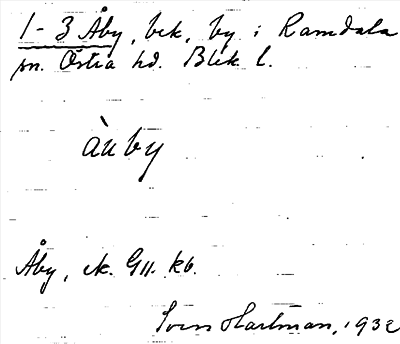 1-3 Åby, bek, by i Ramdala
sn. Östra hd. Blek. l.
àuby
Åby, ek. G11. kb.
Sven Hartman, 1932